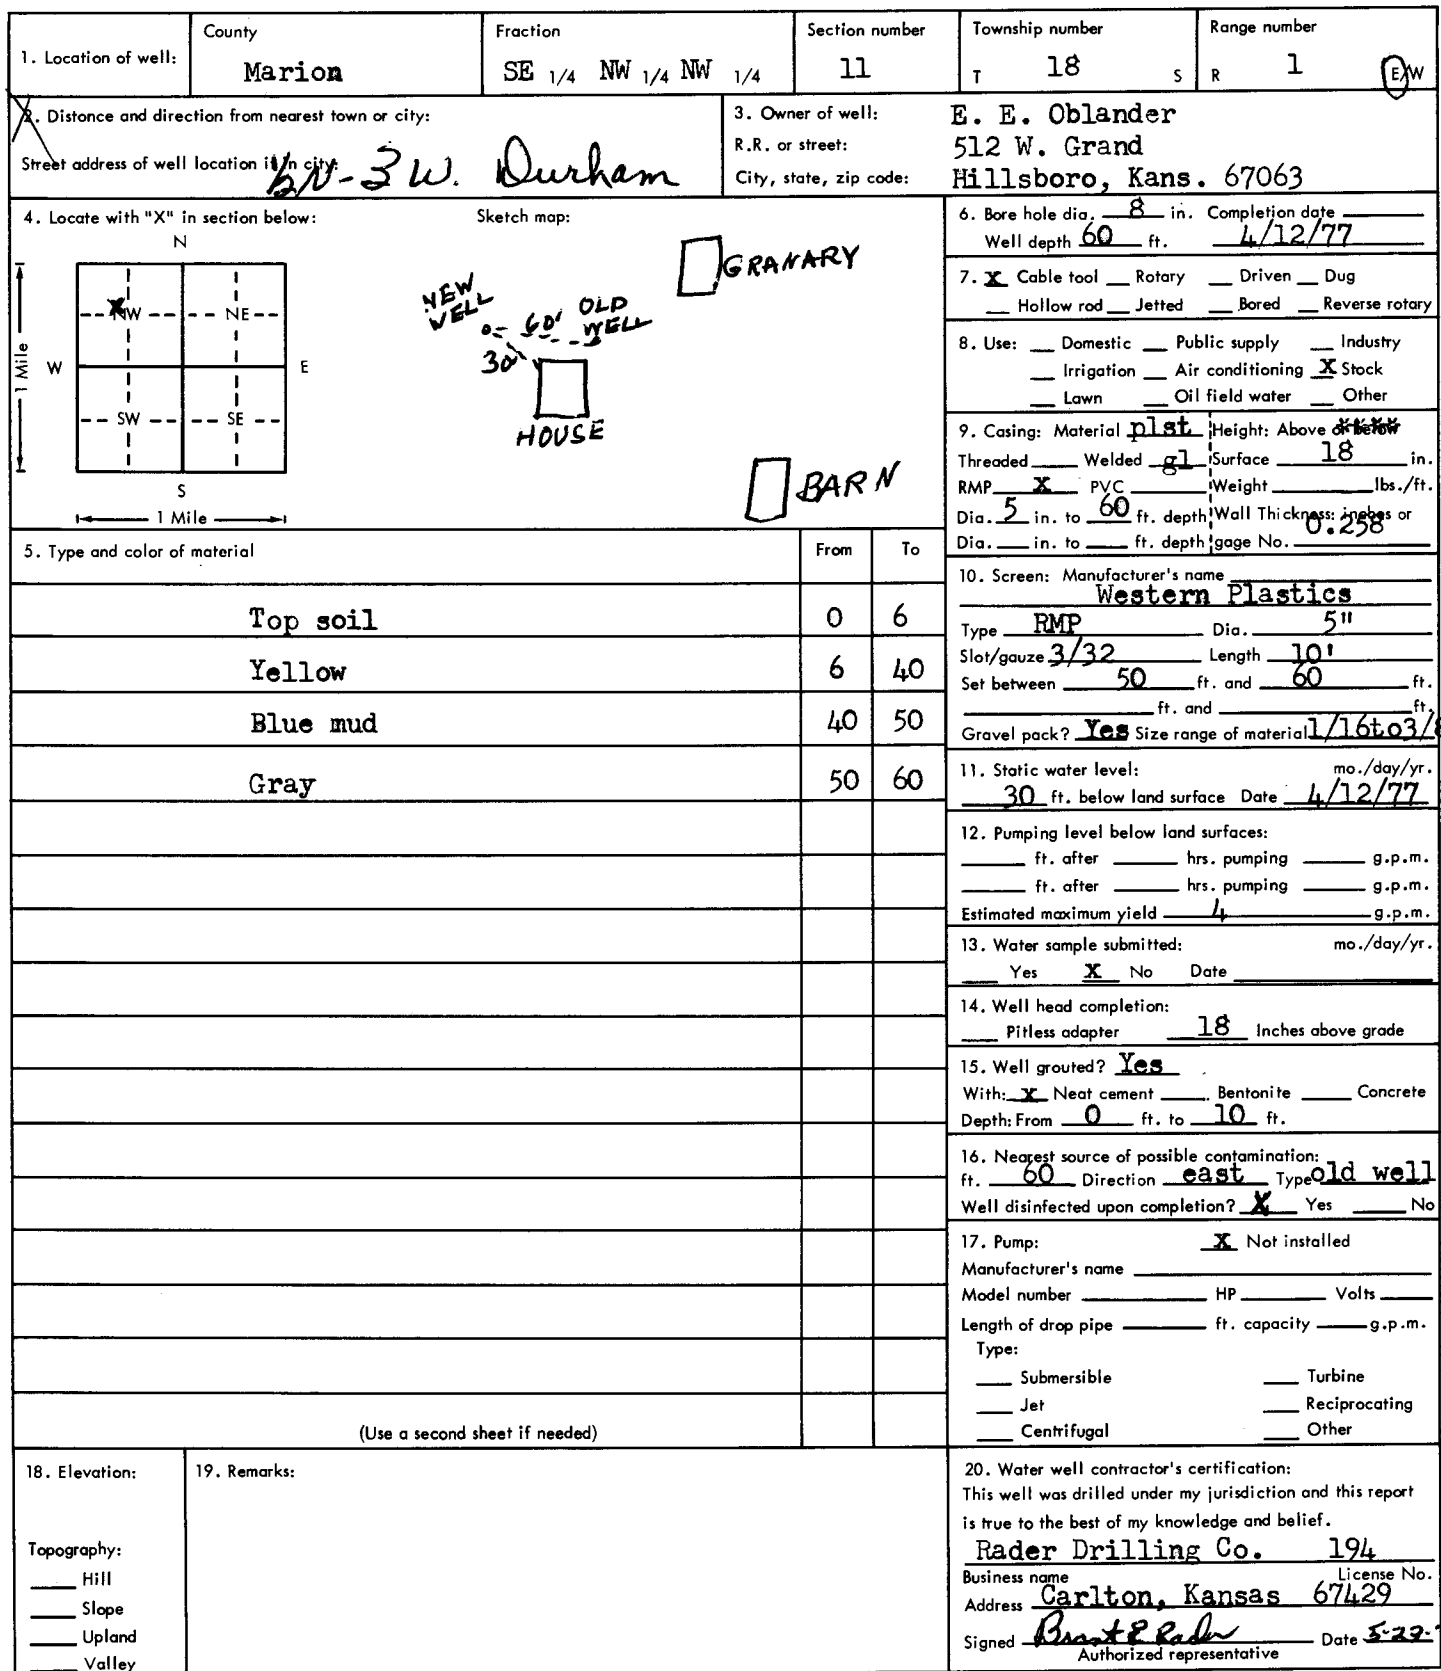 1. Location of well:
County
Marion
Fraction
SE 1/4 NW 1/4 NW 1/4
Section number
11
Township number
T 18 S
Range number
R 1 E/W
2. Distance and direction from nearest town or city:
Street address of well location if in city:
1/2N-3W. Durham
3. Owner of well: E. E. Oblander
R.R. or street: 512 W. Grand
City, state, zip code: Hillsboro, Kans. 67063
4. Locate with "X" in section below:
N
X
NW NE
1 Mile
W E
SW SE
S
1 Mile
Sketch map:
GRANARY
NEW WELL
60'
OLD WELL
30'
HOUSE
BARN
5. Type and color of material From To
Top soil 0 6
Yellow 6 40
Blue mud 40 50
Gray 50 60
(Use a second sheet if needed)
6. Bore hole dia. 8 in. Completion date
Well depth 60 ft. 4/12/77
7. X Cable tool Rotary Driven Dug
Hollow rod Jetted Bored Reverse rotary
8. Use: Domestic Public supply Industry
Irrigation Air conditioning X Stock
Lawn Oil field water Other
9. Casing: Material plst Height: Above or below
Threaded Welded gl Surface 18 in.
RMP X PVC Weight lbs./ft.
Dia. 5 in. to 60 ft. depth Wall Thickness: inches or
Dia. in. to ft. depth gage No. 0.258
10. Screen: Manufacturer's name
Western Plastics
Type RMP Dia. 5"
Slot/gauze 3/32 Length 10'
Set between 50 ft. and 60 ft.
ft. and ft.
Gravel pack? Yes Size range of material 1/16to3/8
11. Static water level: mo./day/yr.
30 ft. below land surface Date 4/12/77
12. Pumping level below land surfaces:
ft. after hrs. pumping g.p.m.
ft. after hrs. pumping g.p.m.
Estimated maximum yield 4 g.p.m.
13. Water sample submitted: mo./day/yr.
Yes X No Date
14. Well head completion:
Pitless adapter 18 Inches above grade
15. Well grouted? Yes
With: X Neat cement Bentonite Concrete
Depth: From 0 ft. to 10 ft.
16. Nearest source of possible contamination:
ft. 60 Direction east Type old well
Well disinfected upon completion? X Yes No
17. Pump: X Not installed
Manufacturer's name
Model number HP Volts
Length of drop pipe ft. capacity g.p.m.
Type:
Submersible Turbine
Jet Reciprocating
Centrifugal Other
18. Elevation:
Topography:
Hill
Slope
Upland
Valley
19. Remarks:
20. Water well contractor's certification:
This well was drilled under my jurisdiction and this report
is true to the best of my knowledge and belief.
Rader Drilling Co. 194
Business name License No.
Address Carlton, Kansas 67429
Signed Brant E Rader Date 5-22-
Authorized representative